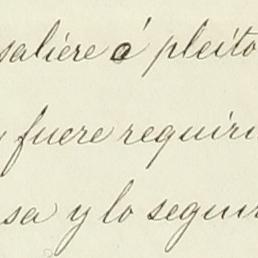 saliere ó pleito
y fuere requiri
sa y lo segui